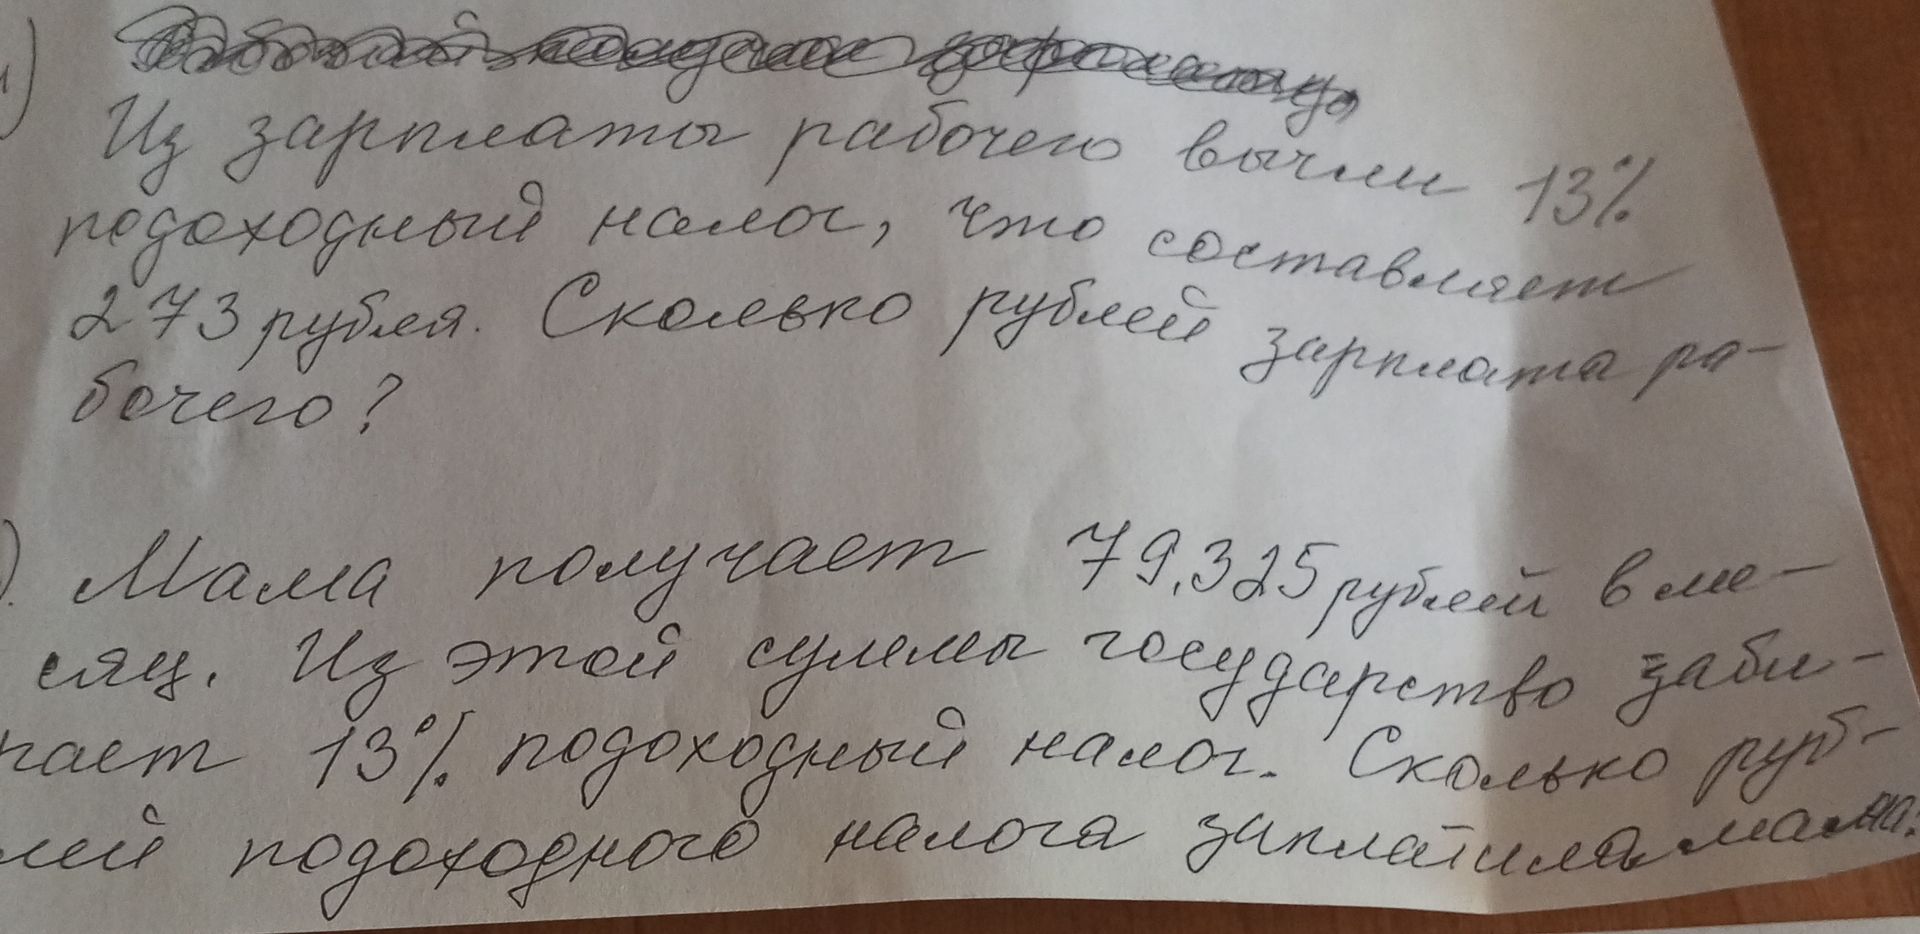 1)
Из зарплаты рабочего вычли 13%
подоходный налог, что составляет
273 рубля. Сколько рублей зарплата ра-
бочего?
). Мама получает 79.325 рублей в ме-
сяц. Из этой суммы государство заби-
рает 13% подоходный налог. Сколько руб-
лей подоходного налога заплатила мама?